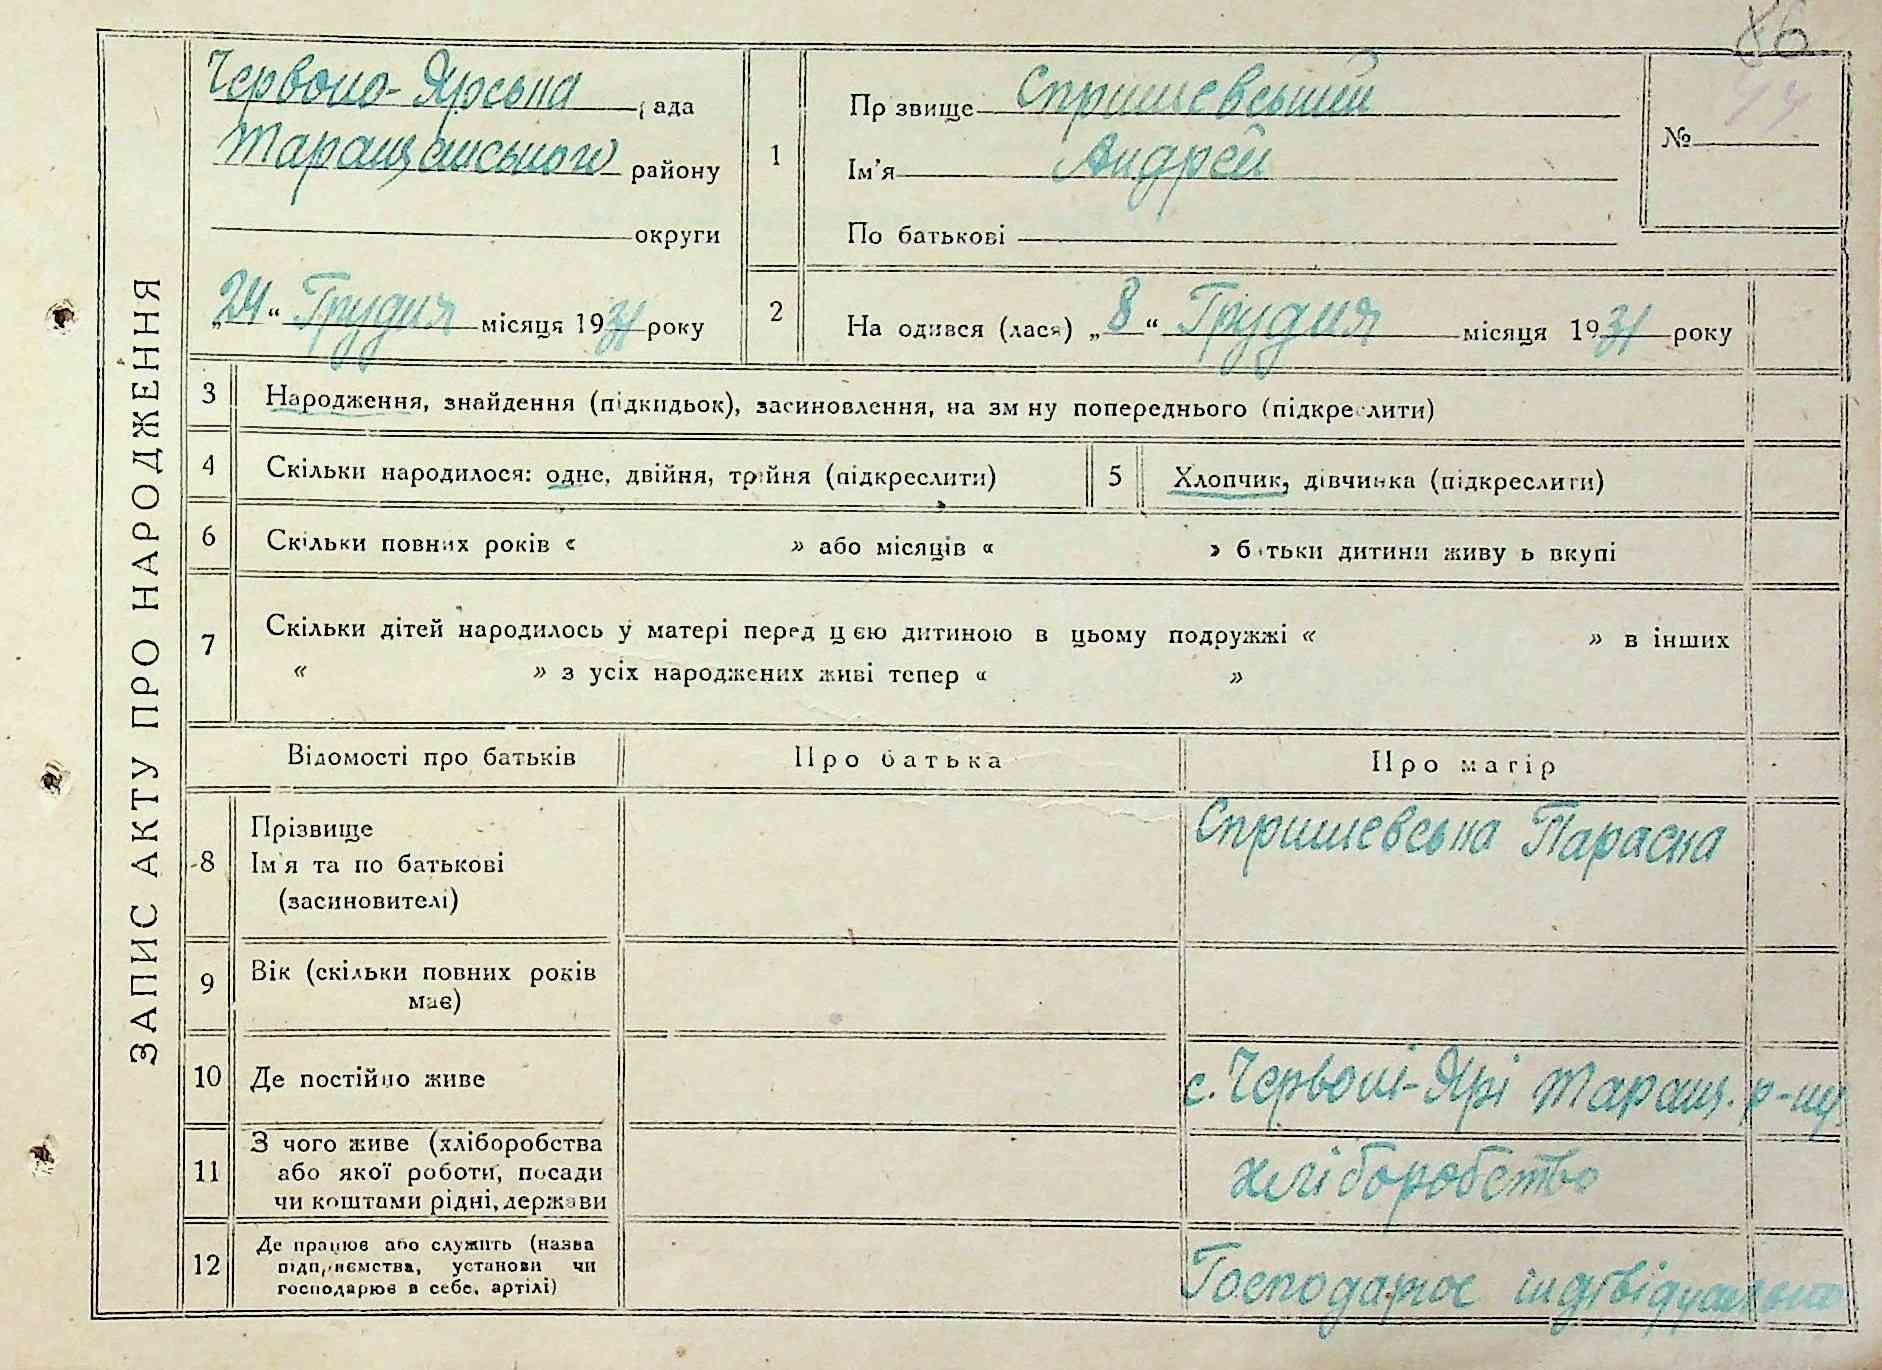 86
ЗАПИС АКТУ ПРО НАРОДЖЕННЯ
Червоно-Ярська рада
Таращанського району
округи
„24“ Грудня місяця 1931 року
1
Прізвище Спришевський
Ім'я Андрей
По батькові
№ 44
2
Народився (лася) „8“ Грудня місяця 1931 року
3 Народження, знайдення (підкидьок), засиновлення, на зміну попереднього (підкреслити)
4 Скільки народилося: одне, двійня, трійня (підкреслити)
5 Хлопчик, дівчинка (підкреслити)
6 Скільки повних років « » або місяців « » батьки дитини живуть вкупі
7 Скільки дітей народилось у матері перед цією дитиною в цьому подружжі « » в інших
« » з усіх народжених живі тепер « »
Відомості про батьків Про батька Про матір
8 Прізвище
Ім'я та по батькові
(засиновителі)
Спришевська Параска
9 Вік (скільки повних років
має)
10 Де постійно живе
с. Червоні-Ярі Таращ. р-ну
11 З чого живе (хліборобства
або якої роботи, посади
чи коштами рідні, держави
хліборобство
12 Де працює або служить (назва
підприємства, установи чи
господарює в себе, артілі)
Господарює індівідуально